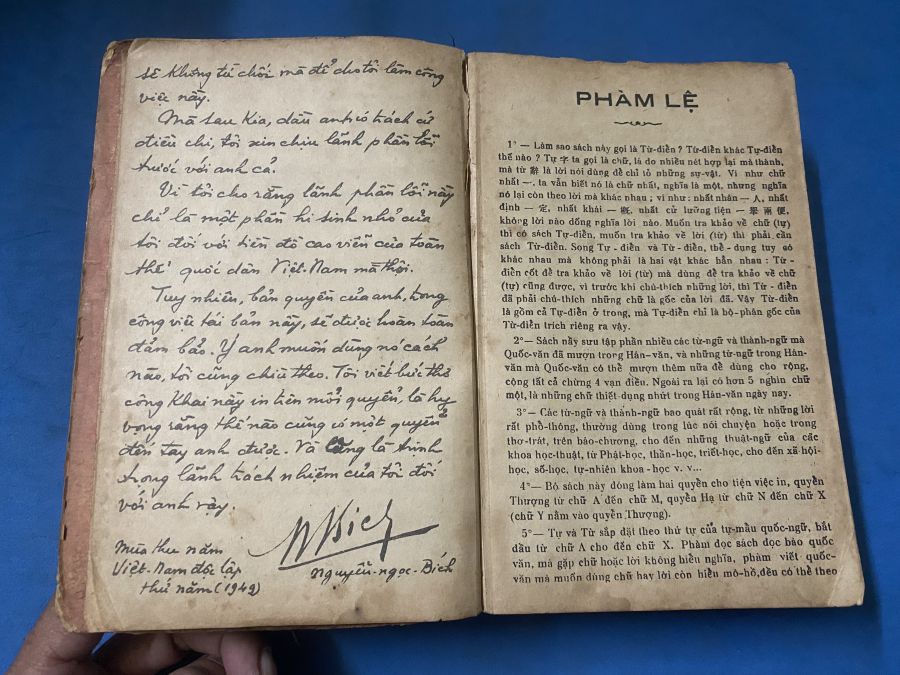 sẽ không từ chối mà để cho tôi làm công
việc này.
Mà sau kia, dầu anh có trách cứ
điều chi, tôi xin chịu lãnh phần lỗi
trước với anh cả.
Vì tôi cho rằng lãnh phần lỗi này
chỉ là một phần hi sinh nhỏ của
tôi đối với tiền đồ cao viễn của toàn
thể quốc dân Việt-Nam mà thôi.
Tuy nhiên, bản quyền của anh, trong
công việc tái bản này, sẽ được hoàn toàn
đảm bảo. Ý anh muốn dùng nó cách
nào, tôi cũng chiù theo. Tôi viết bức thơ
công khai này in trên mỗi quyển, là hy
vọng rằng thế nào cũng có một quyển
đến tay anh được. Và cũng là trịnh
trọng lãnh trách nhiệm của tôi đối
với anh vậy.
NBich
Mùa thu năm
Việt-Nam độc lập
thứ năm (1949)
Nguyễn-ngọc-Bích
PHÀM LỆ
1° — Làm sao sách này gọi là Từ-điển ? Từ-điển khác Tự-điển
thế nào ? Tự 字 ta gọi là chữ, là do nhiều nét hợp lại mà thành,
mà từ 辭 là lời nói dùng để chỉ tỏ những sự-vật. Ví như chữ
nhất 一, ta vẫn biết nó là chữ nhất, nghĩa là một, nhưng nghĩa
nó lại còn theo lời mà khác nhau ; ví như : nhất nhân 一 人, nhất
định 一 定, nhất khái 一 概, nhất cử lưỡng tiện 一 舉 兩 便,
không lời nào dống nghĩa lời nào. Muốn tra khảo về chữ (tự)
thì có sách Tự-điển, muốn tra khảo về lời (từ) thì phải cần
sách Từ-điển. Song Tự - điển và Từ - điển, thể - dụng tuy có
khác nhau mà không phải là hai vật khác hẳn nhau : Từ -
điển cốt để tra khảo về lời (từ) mà dùng để tra khảo về chữ
(tự) cũng được, vì trước khi chú-thích những lời, thì Từ - điển
đã phải chú-thích những chữ là gốc của lời đã. Vậy Từ-điển
là gồm cả Tự-điển ở trong, mà Tự-điển chỉ là bộ-phận gốc của
Từ-điển trích riêng ra vậy.
2° — Sách nầy sưu tập phần nhiều các từ-ngữ và thành-ngữ mà
Quốc-văn đã mượn trong Hán-văn, và những từ-ngữ trong Hán-
văn mà Quốc-văn có thể mượn thêm nữa để dùng cho rộng,
cộng tất cả chừng 4 vạn điều. Ngoài ra lại có hơn 5 nghìn chữ
một, là những chữ thiệt-dụng nhứt trong Hán-văn ngày nay.
3° — Các từ-ngữ và thành-ngữ bao quát rất rộng, từ những lời
rất phổ-thông, thường dùng trong lúc nói chuyện hoặc trong
thơ-trát, trên báo-chương, cho đến những thuật-ngữ của các
khoa học-thuật, từ Phật-học, thần-học, triết-học, cho đến xã-hội-
học, số-học, tự-nhiên khoa - học v. v...
4° — Bộ sách này đóng làm hai quyển cho tiện việc in, quyển
Thượng từ chữ A đến chữ M, quyển Hạ từ chữ N đến chữ X
(chữ Y nằm vào quyển Thượng).
5° — Tự và Từ sắp đặt theo thứ tự của tự-mẫu quốc-ngữ, bắt
đầu từ chữ A cho đến chữ X. Phàm đọc sách đọc báo quốc
văn, mà gặp chữ hoặc lời không hiểu nghĩa, phàm viết quốc-
văn mà muốn dùng chữ hay lời còn hiểu mơ-hồ, đều có thể theo